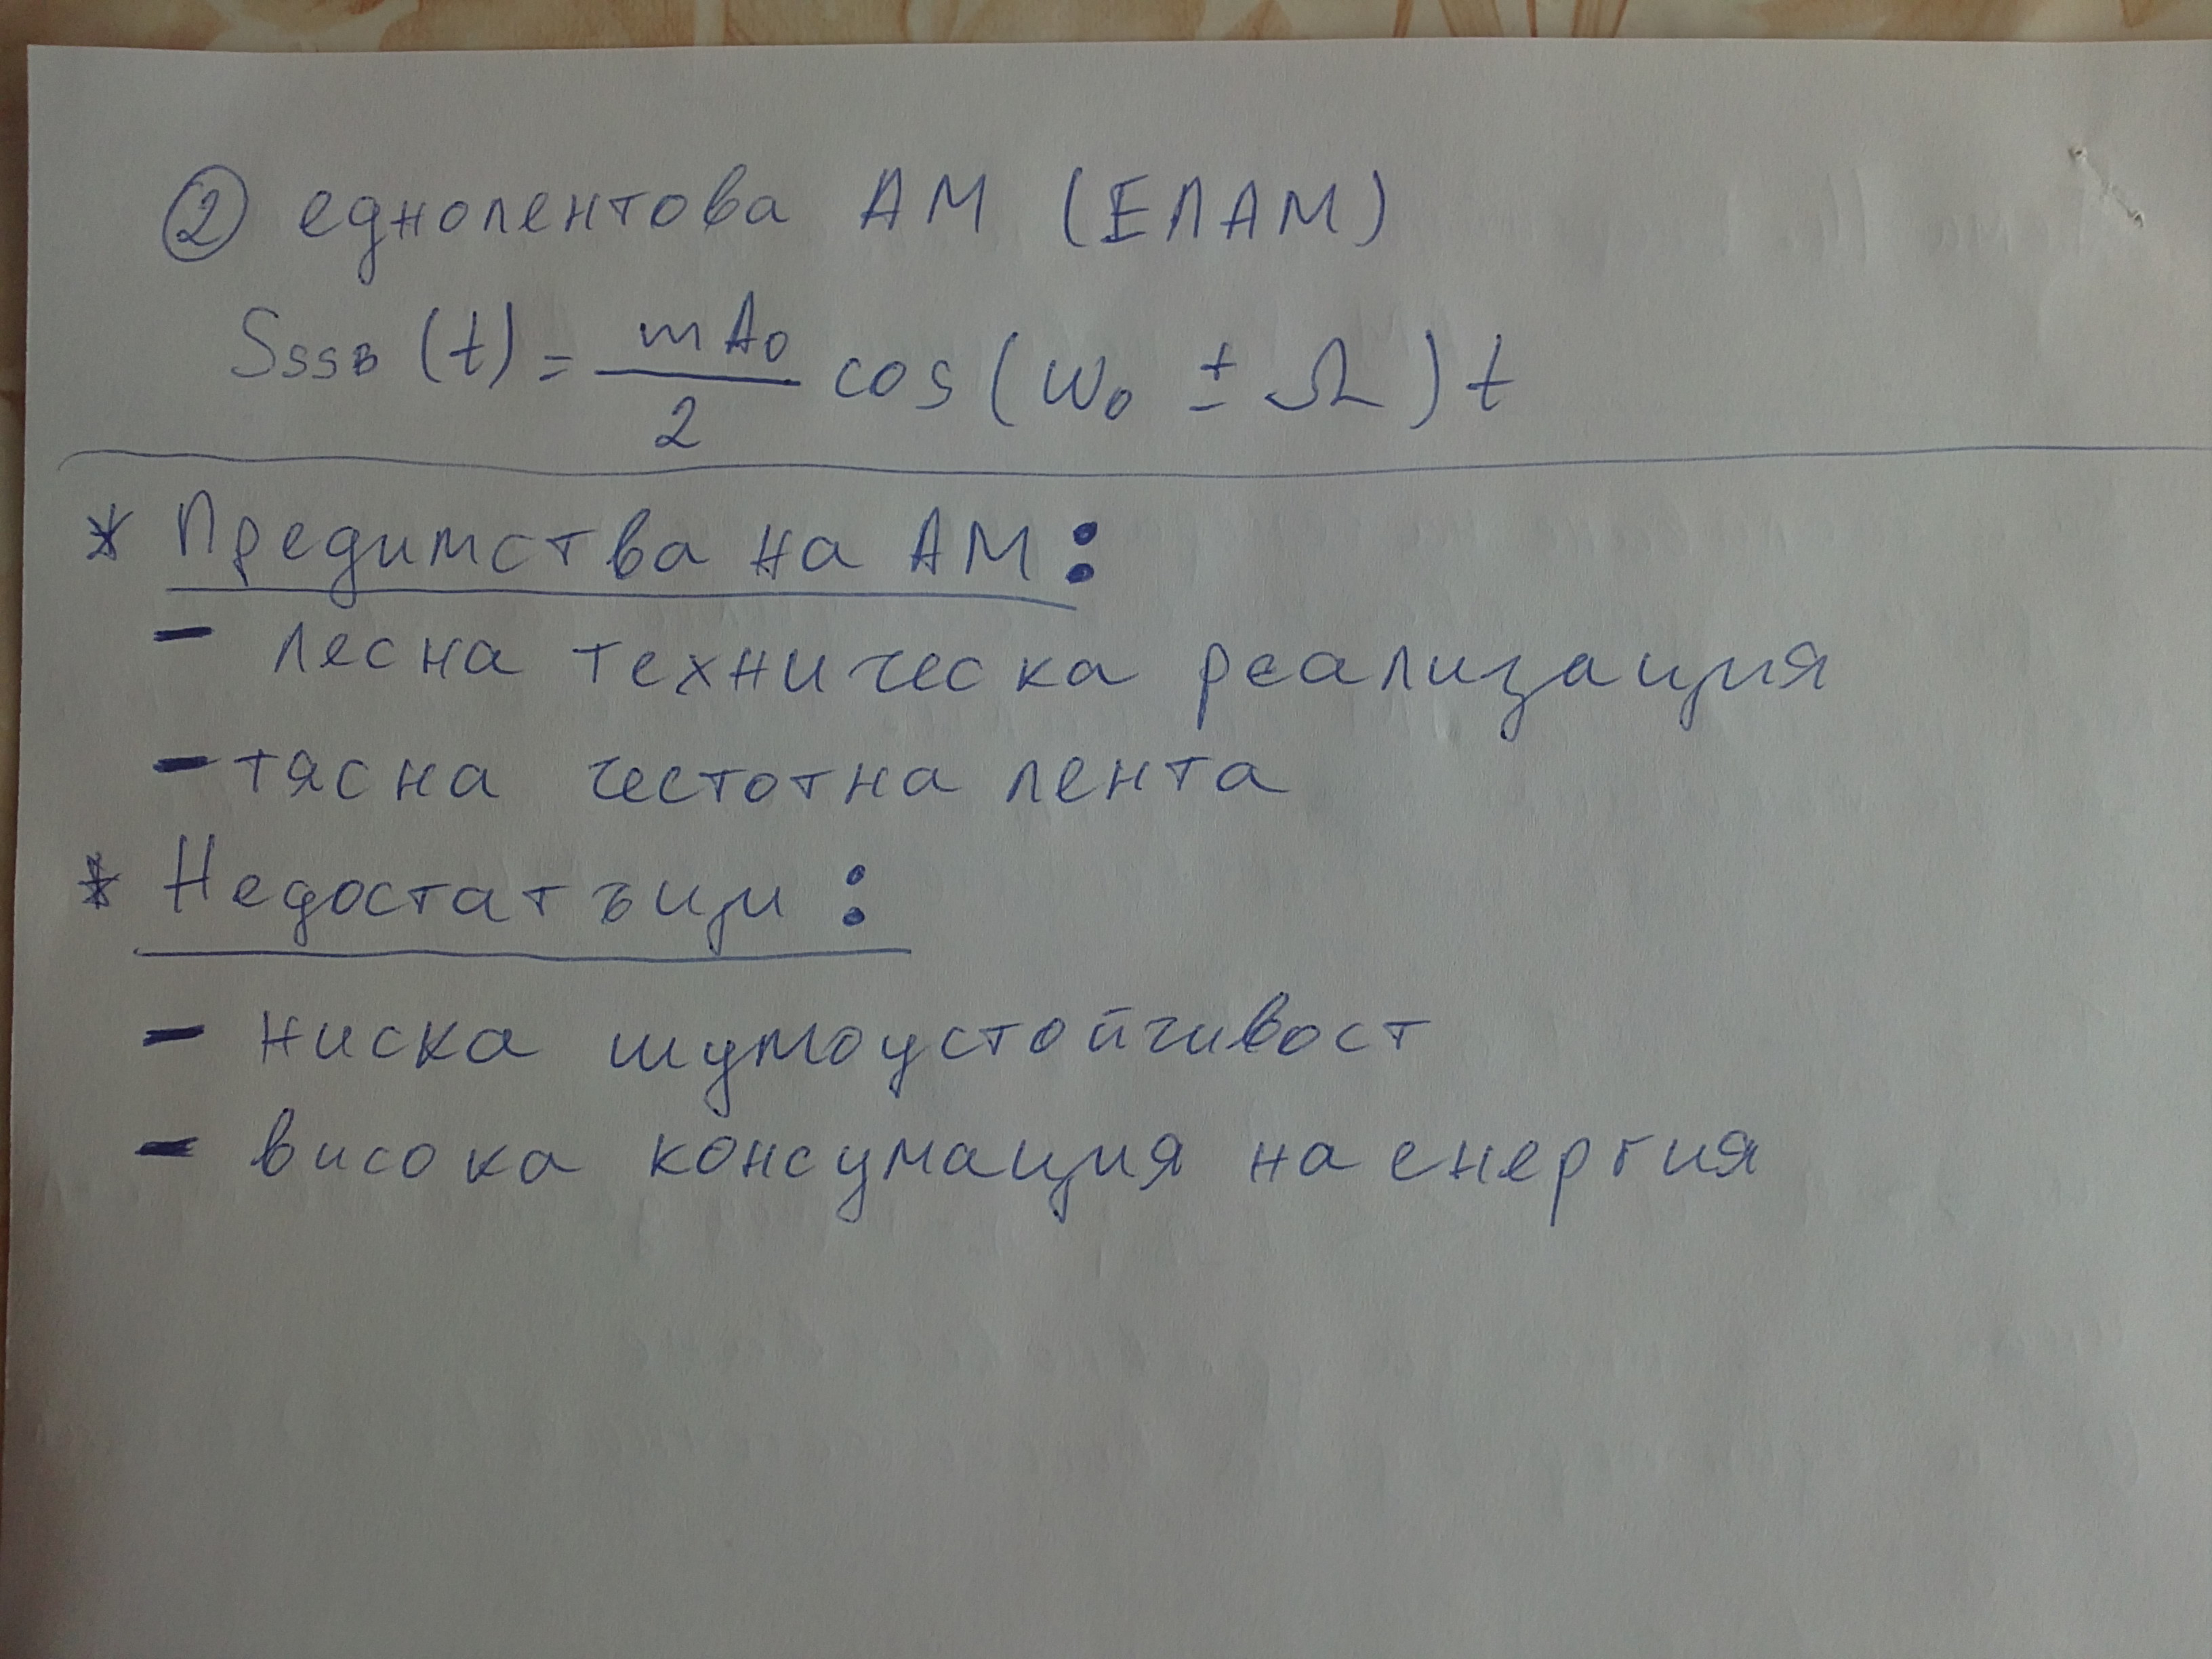 ② еднолентова АМ (ЕЛАМ)
S_SSB (t) = mA₀/2 cos(ω₀ ± Ω)t
* Предимства на АМ:
- лесна техническа реализация
- тясна честотна лента
* Недостатъци:
- ниска шумоустойчивост
- висока консумация на енергия